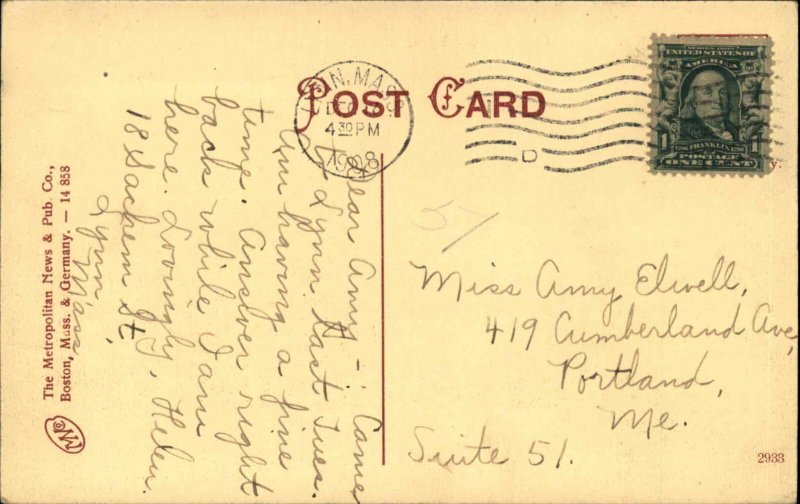 POST CARD
LYNN, MASS.
DEC
4 30 PM
1908
D
SERIES 1902
UNITED STATES OF
AMERICA
1 1
FRANKLIN
POSTAGE
ONE CENT
Dear Amy - : Came
to Lynn last Tues.
Am having a fine
time. Answer right
back while I am
here. Lovingly, Helen.
18 Sachem St,
Lynn,
Mass
51
Miss Amy Elwell,
419 Cumberland Ave,
Portland,
Me.
Suite 51.
The Metropolitan News & Pub. Co.,
Boston, Mass. & Germany. — 14 858
2933